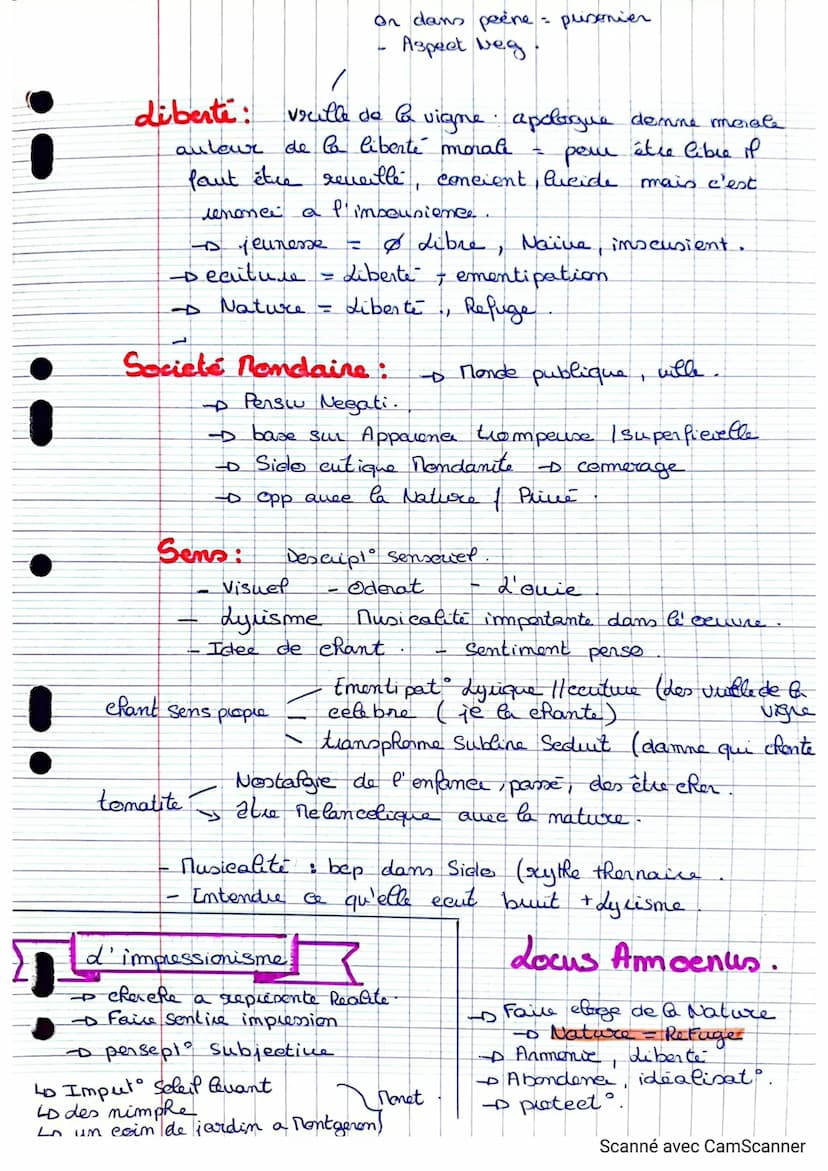 on dans peène = prisonier
- Aspect Neg.
Liberté : vrille de la vigne : apologue donne morale
autour de la liberté morale = pour être libre il
faut être reveillé, concient, lucide mais c'est
renoncé a l'inscusience.
→ jeunesse = ø libre, Naïve, inscusient.
→ ecriture = liberté + ementipation
→ Nature = liberté, Refuge.
Societé Mondaine : → Monde publique, ville.
→ Persu Negati.
→ base sur Apparence trompeuse / superficielle
→ Sido critique Mondanité → comerage
→ opp avec la Nature / Privé.
Sens : Descript° sensoriel.
- Visuel - Odorat - L'ouie.
- Lyrisme Musicalité importante dans l'oeuvre.
- Idee de chant. - Sentiment perso.
Ementipat° Lyrique // ecriture (des vrille de la vigne
chant sens propre - celebre (je la chante)
transphorme Sublime Seduit (damne qui chante
tomalite Nostalgie de l'enfance, passé, des être cher.
être Melancolique avec la nature.
- Musicalité : bcp dans Sido (rythe thernaire.
- Entendre ce qu'elle ecrit bruit + lyrisme.
L'impressionisme
→ cherche a represente Realite.
→ Faire sentire impression
→ persept° subjective
↳ Imput° Soleil levant
↳ des nimphe
↳ un coin de jardin a Montgeron
Monet.
Locus Amoenus.
→ Faire eloge de la Nature
→ Nature = Refuge
→ Armonie, liberté
→ Abondance, idéalisat°.
→ protect°.
Scanné avec CamScanner